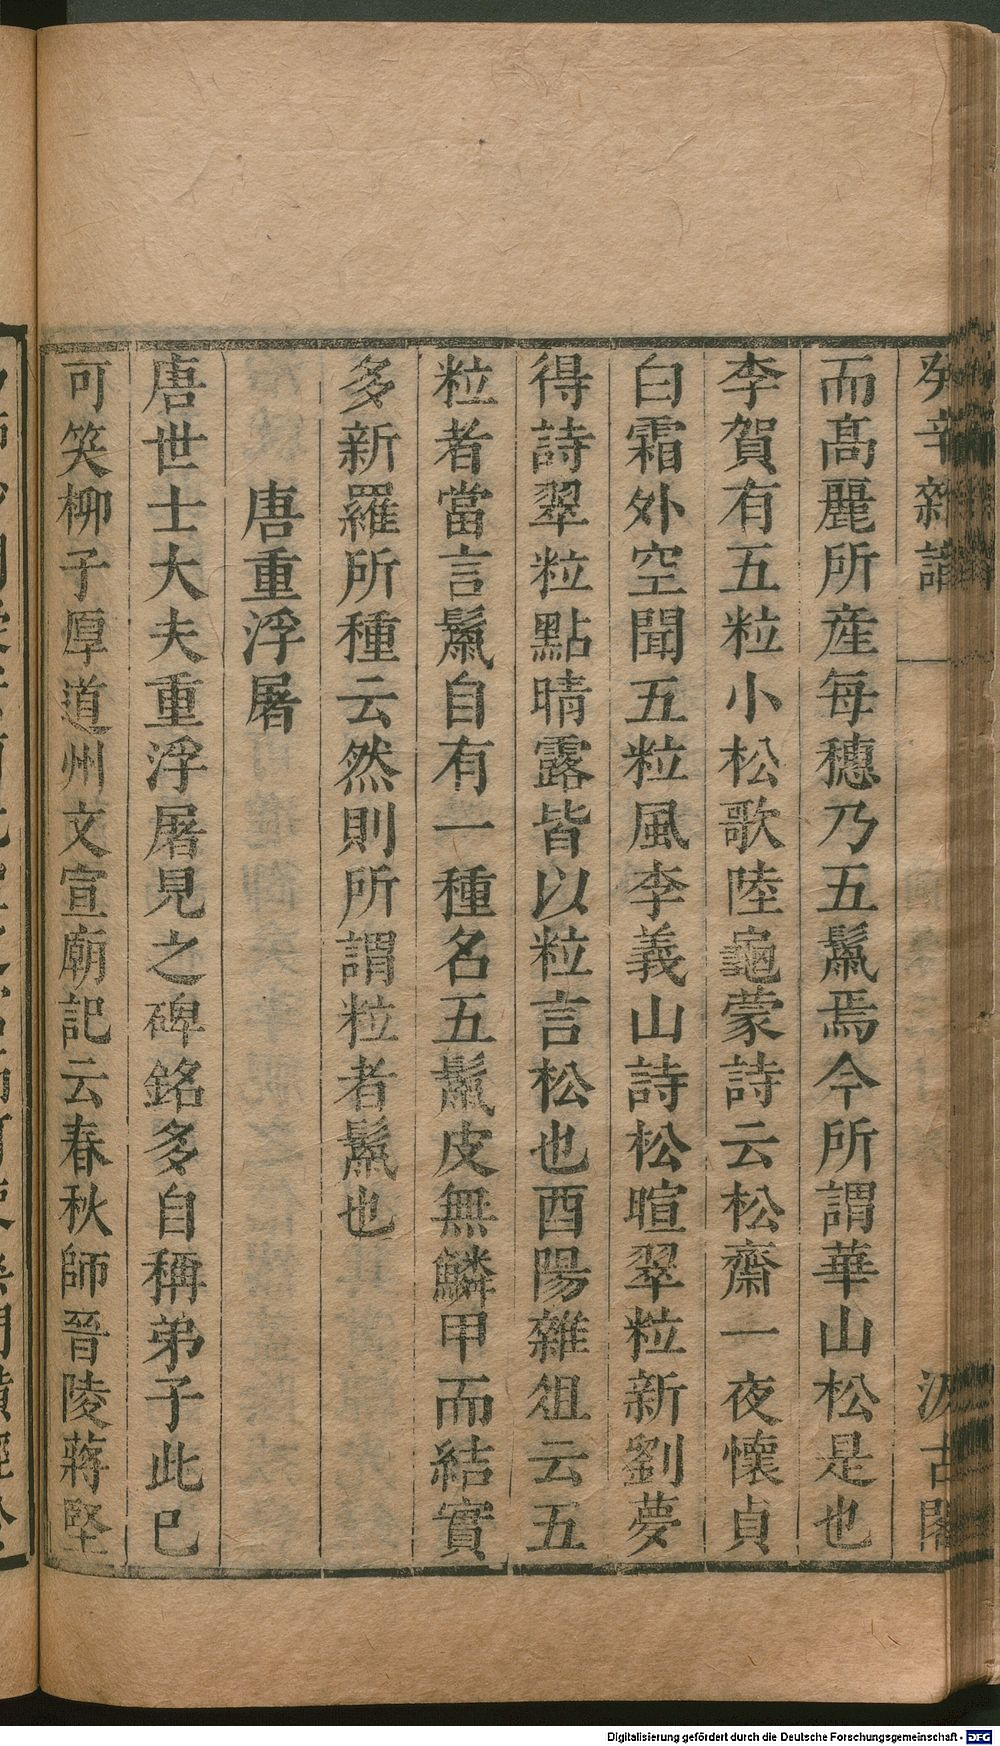 癸辛雜識 一 汲古閣
而高麗所産每穗乃五鬛焉今所謂華山松是也
李賀有五粒小松歌陸龜蒙詩云松齋一夜懷貞
白霜外空聞五粒風李義山詩松暄翠粒新劉夢
得詩翠粒點晴露皆以粒言松也酉陽雜俎云五
粒者當言鬛自有一種名五鬛皮無鱗甲而結實
多新羅所種云然則所謂粒者鬛也
唐重浮屠
唐世士大夫重浮屠見之碑銘多自稱弟子此已
可笑柳子厚道州文宣廟記云春秋師晉陵蔣堅
Digitalisierung gefördert durch die Deutsche Forschungsgemeinschaft - DFG